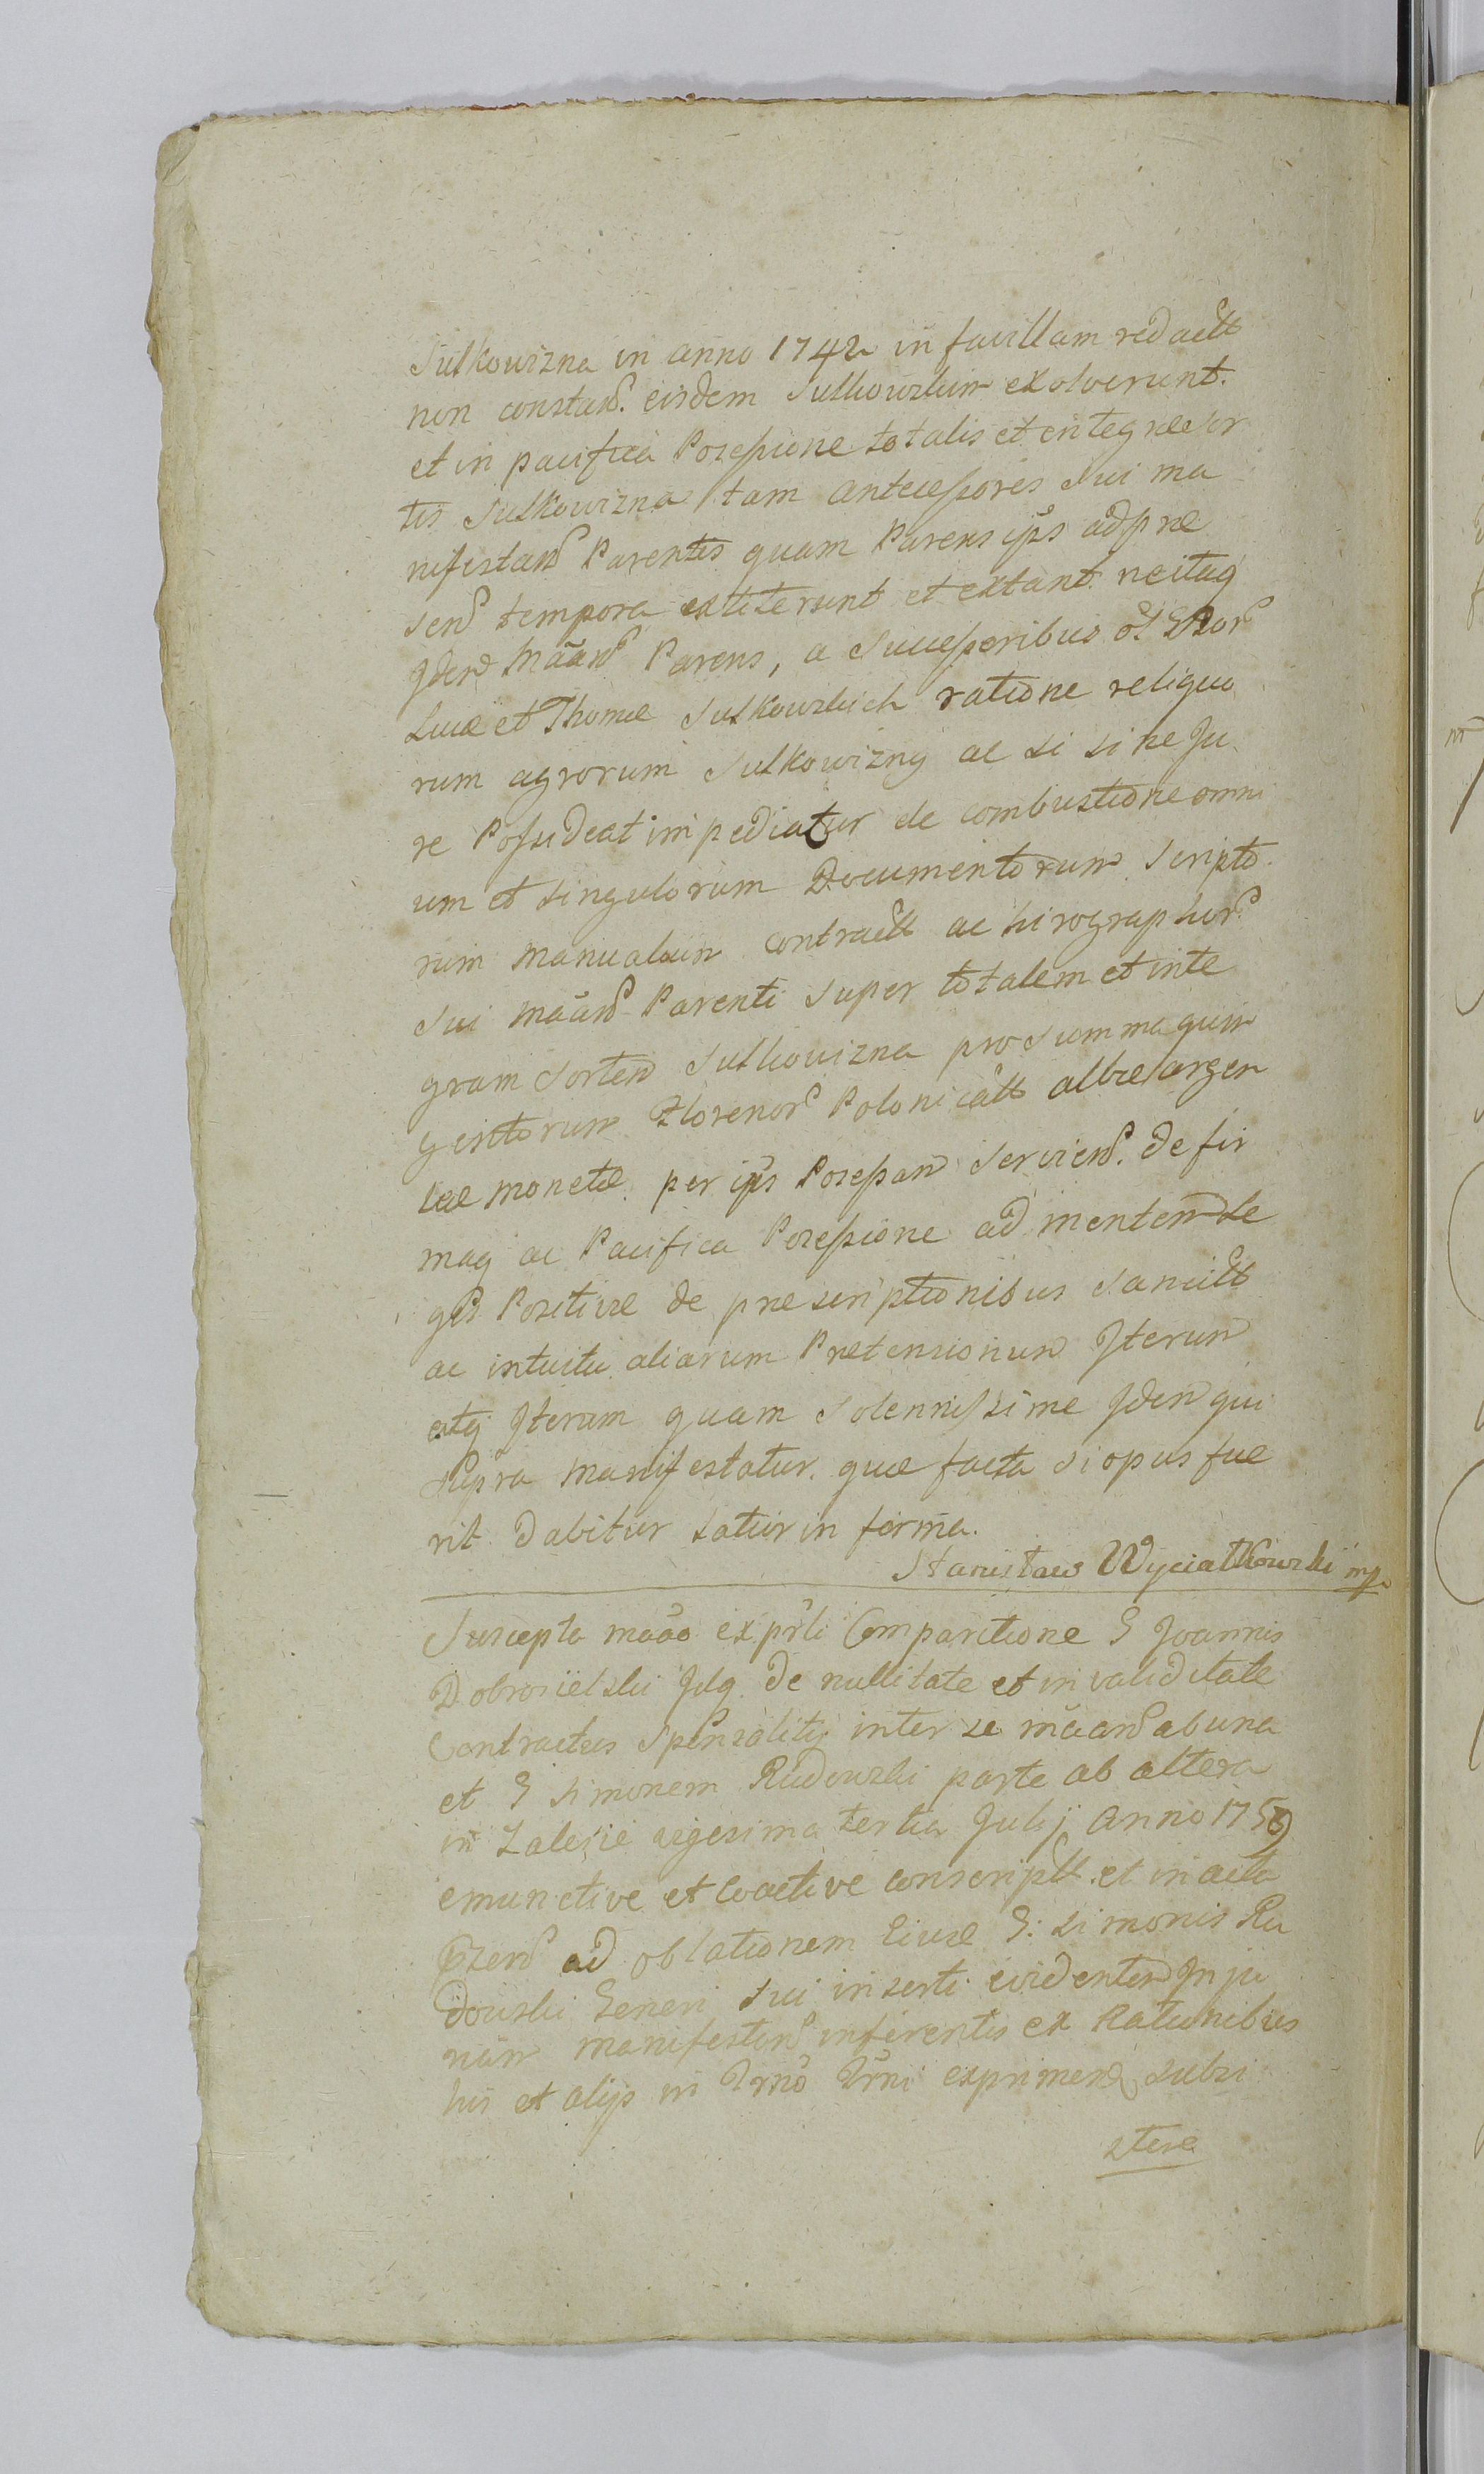 Sutkowizna in anno 1742 in favillam redactt
non constan. eisdem Sutkowskim exolverunt.
et in pacifica Possessione totalis et integræ Sor
tis Sutkowizna tam antecessores sui ma
nifestan Parentis quam Parens ips ad præ
sen tempora extiterunt et extant neitaq
Iden Mãan Parens, a Successoribus olim
Lucæ et Thomæ Sutkowskich ratione reliquo
rum agrorum Sutkowizny ac si sine Ju
re Possideat impediatur de combustione omni
um et singulorum Documentorum Scripto
rum manualium contractt ac hirographor
sui mãan Parenti super totalem et inte
gram Sorten Sutkowizna pro summa quin
gentorum Florenor Polonicatt albæ argen
teæ monetæ per ips Possessam Servien. de fir
maq ac Pacifica Possessione ad mentem Le
gis Positivæ de præscriptionibus Sancitt
ac intuitu aliarum Prætensionum Iterum
atq Iterum quam Solennissime Iden qui
supra manifestatur. quæ facta si opus fue
rit dabitur latior in forma.
Stanisław Wyciałkowski mp
Suscepta mãao ex prsli Comparitione G Joannis
Dobrosielski Jdq de nullitate et invaliditate
Contractus Sponsalitij inter se mãan ab una
et G Simonem Rudowski parte ab altera
in Zalesie vigesima tertia Julij Anno 1759
emunctive et coactive conscriptt. et in acta
ad oblationem Ejusd G: Simonis Ru
dowski Generi sui inserti evidenten Inju
riam manifestan inferentis ex Rationibus
his et alijs in Trno Trni exprimen subsi
stere